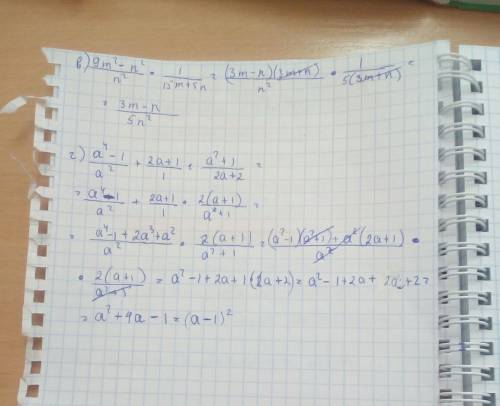 в) (9m² - n²)/n² · 1/(15m+5n) = (3m-n)(3m+n)/n² · 1/(5(3m+n)) =
= (3m-n)/(5n²)
г) (a⁴-1)/a² + (2a+1)/1 : (a²+1)/(2a+2) =
= (a⁴-1)/a² + (2a+1)/1 · 2(a+1)/(a²+1) =
= (a⁴-1+2a³+a²)/a² · 2(a+1)/(a²+1) = ((a²-1)(a²+1)+a²(2a+1))/a² ·
· 2(a+1)/(a²+1) = a²-1+2a+1(2a+2) = a²-1+2a+2a+2=
= a²+4a-1=(a-1)²